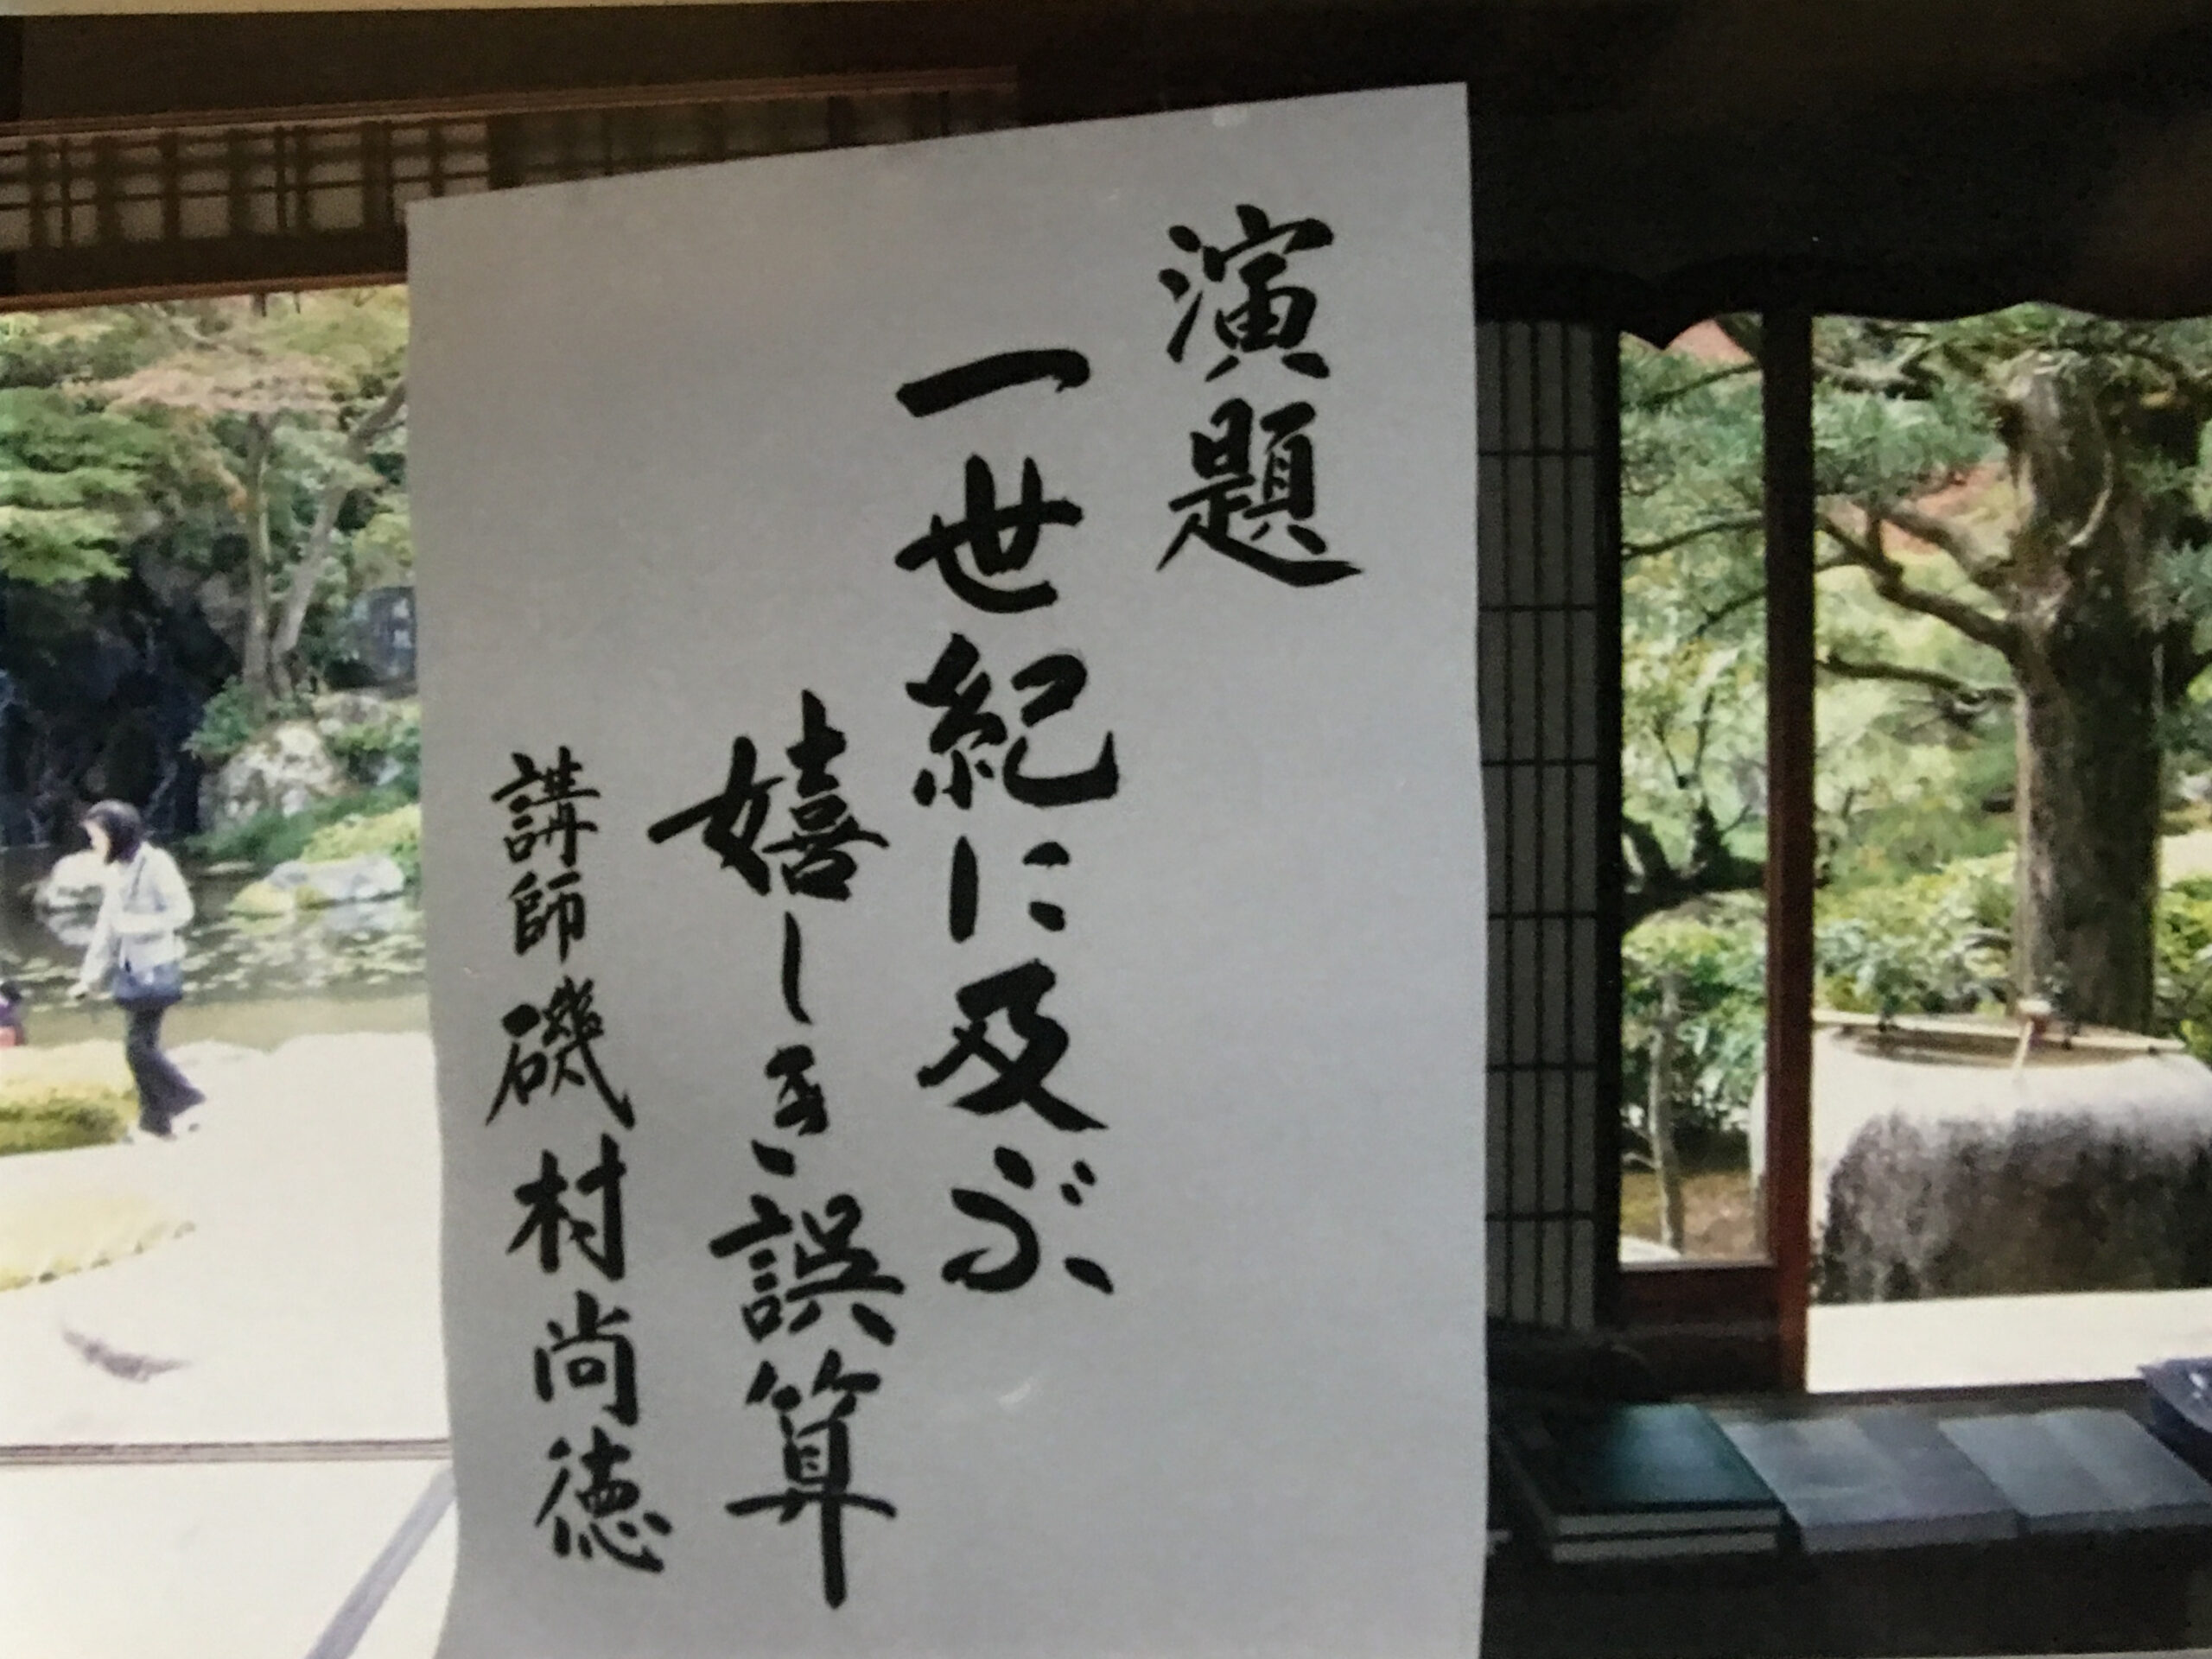 演題
一世紀に及ぶ
嬉しき誤算
講師 磯村尚徳